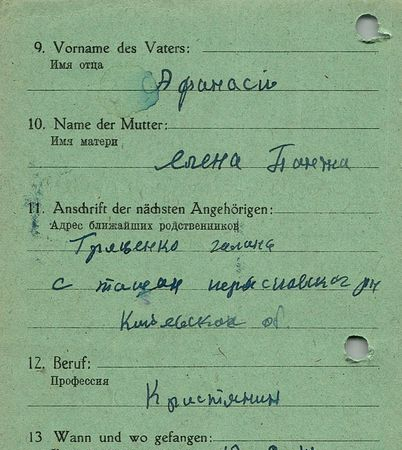 9. Vorname des Vaters:
Имя отца
Афанасій
10. Name der Mutter:
Имя матери
Елена
11. Anschrift der nächsten Angehörigen:
Адрес ближайших родственников
Гриценко галина
с ташан
Киевская об.
12. Beruf:
Профессия
Кристянин
13 Wann und wo gefangen: